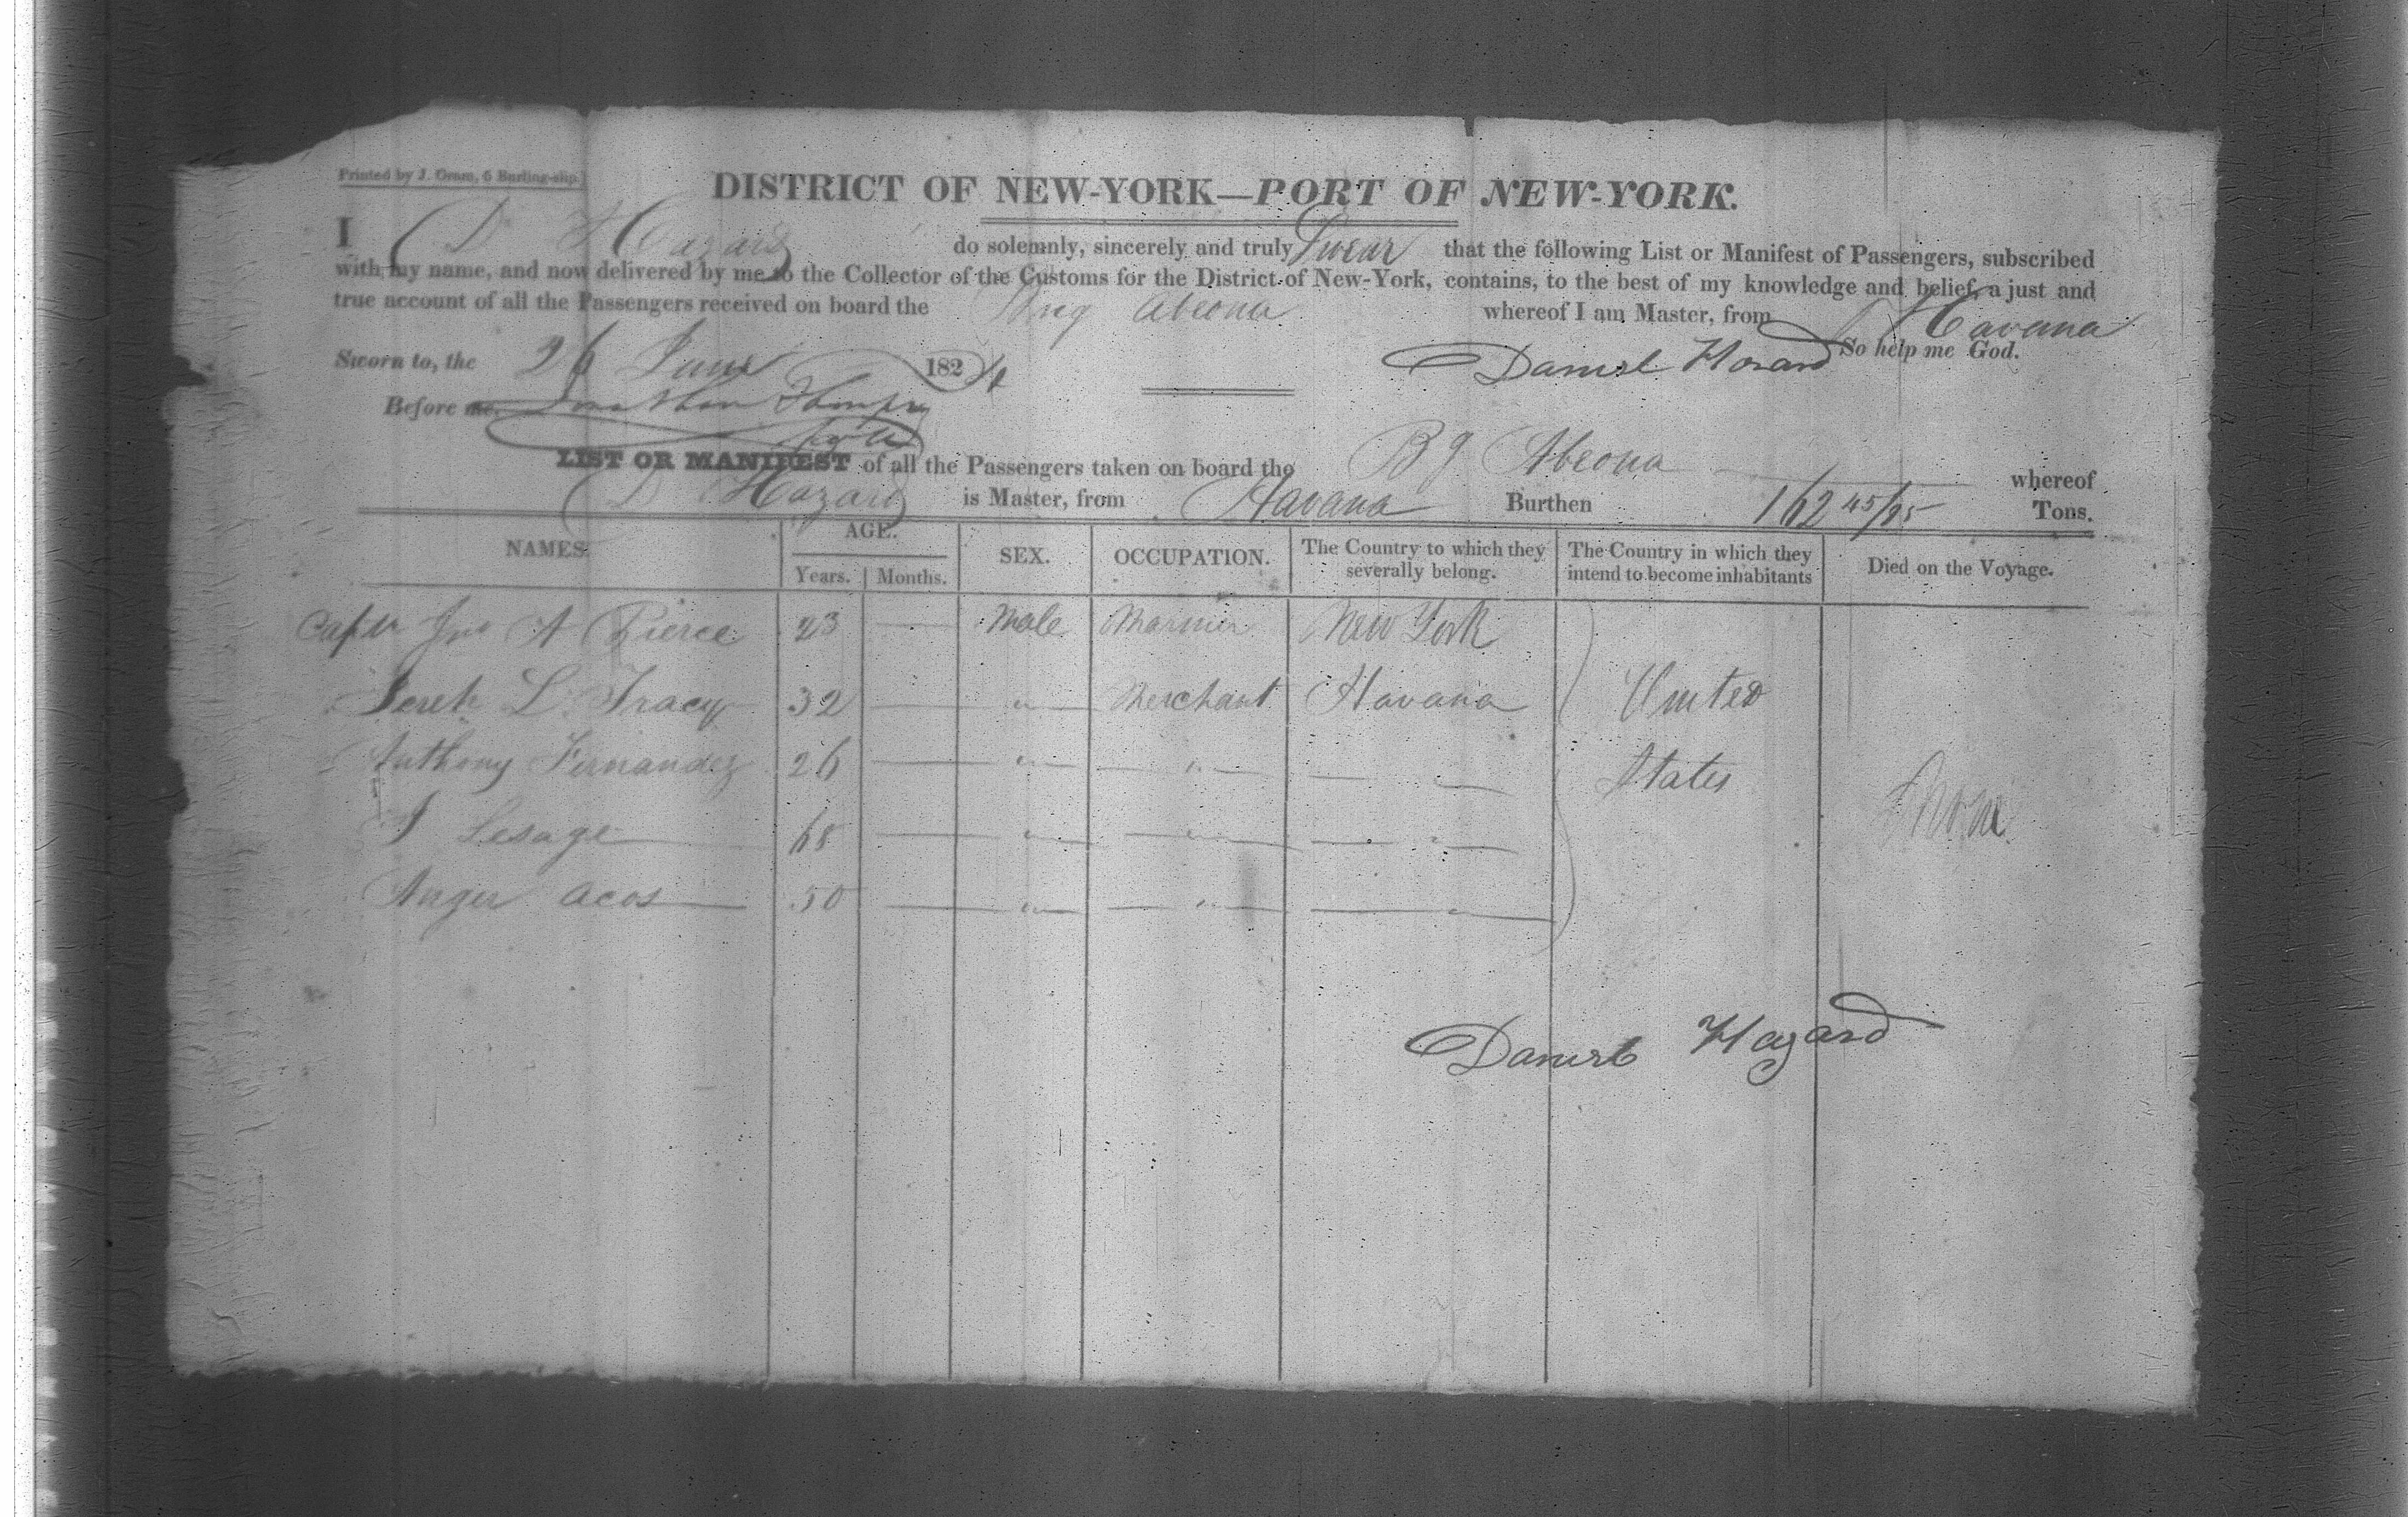 Printed by J. Oram, 5 Burling-slip.
DISTRICT OF NEW-YORK—PORT OF NEW-YORK.
I D Hazard do solemnly, sincerely and truly Swear that the following List or Manifest of Passengers, subscribed
with my name, and now delivered by me to the Collector of the Customs for the District of New-York, contains, to the best of my knowledge and belief, a just and
true account of all the Passengers received on board the Brig Abeona whereof I am Master, from Havana
Sworn to, the 26 June 1824 So help me God.
Daniel Hazard
Before me, Jonathan Thompson
LIST OR MANIFEST of all the Passengers taken on board the Bg Abeona whereof
D Hazard is Master, from Havana Burthen 162 45/95 Tons.
NAMES. AGE. SEX. OCCUPATION. The Country to which they severally belong. The Country in which they intend to become inhabitants Died on the Voyage.
Years. Months.
Capt Jno A Pierce 23 Male Mariner New York
L. Tracy 32 " Merchant Havana United
Anthony Fernandez 26 " " " States
Lesage 68 " " " None
Acos 50 " " "
Daniel Hazard